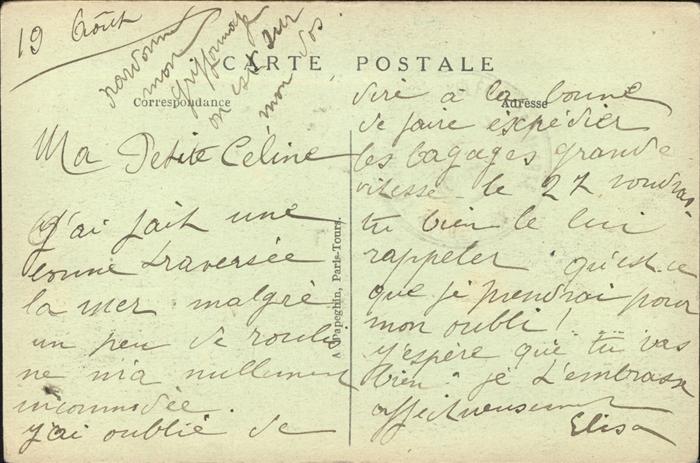 19 Août
Pardonne
mon
griffonnage
on est sur
mon dos.
CARTE POSTALE
Correspondance
Adresse
Ma Petite Céline
J'ai fait une
bonne traversée
la mer malgré
un peu de roulis
ne m'a nullement
incommodée.
j'ai oublié de
A. Papeghin, Paris-Tours.
dire à la bonne
de faire expédier
les bagages grande
vitesse le 27 voudras
tu bien le lui
rappeler qu'est-ce
que je prendrai pour
mon oubli!
j'espère que tu vas
bien je t'embrasse
affectueusement
Elisa